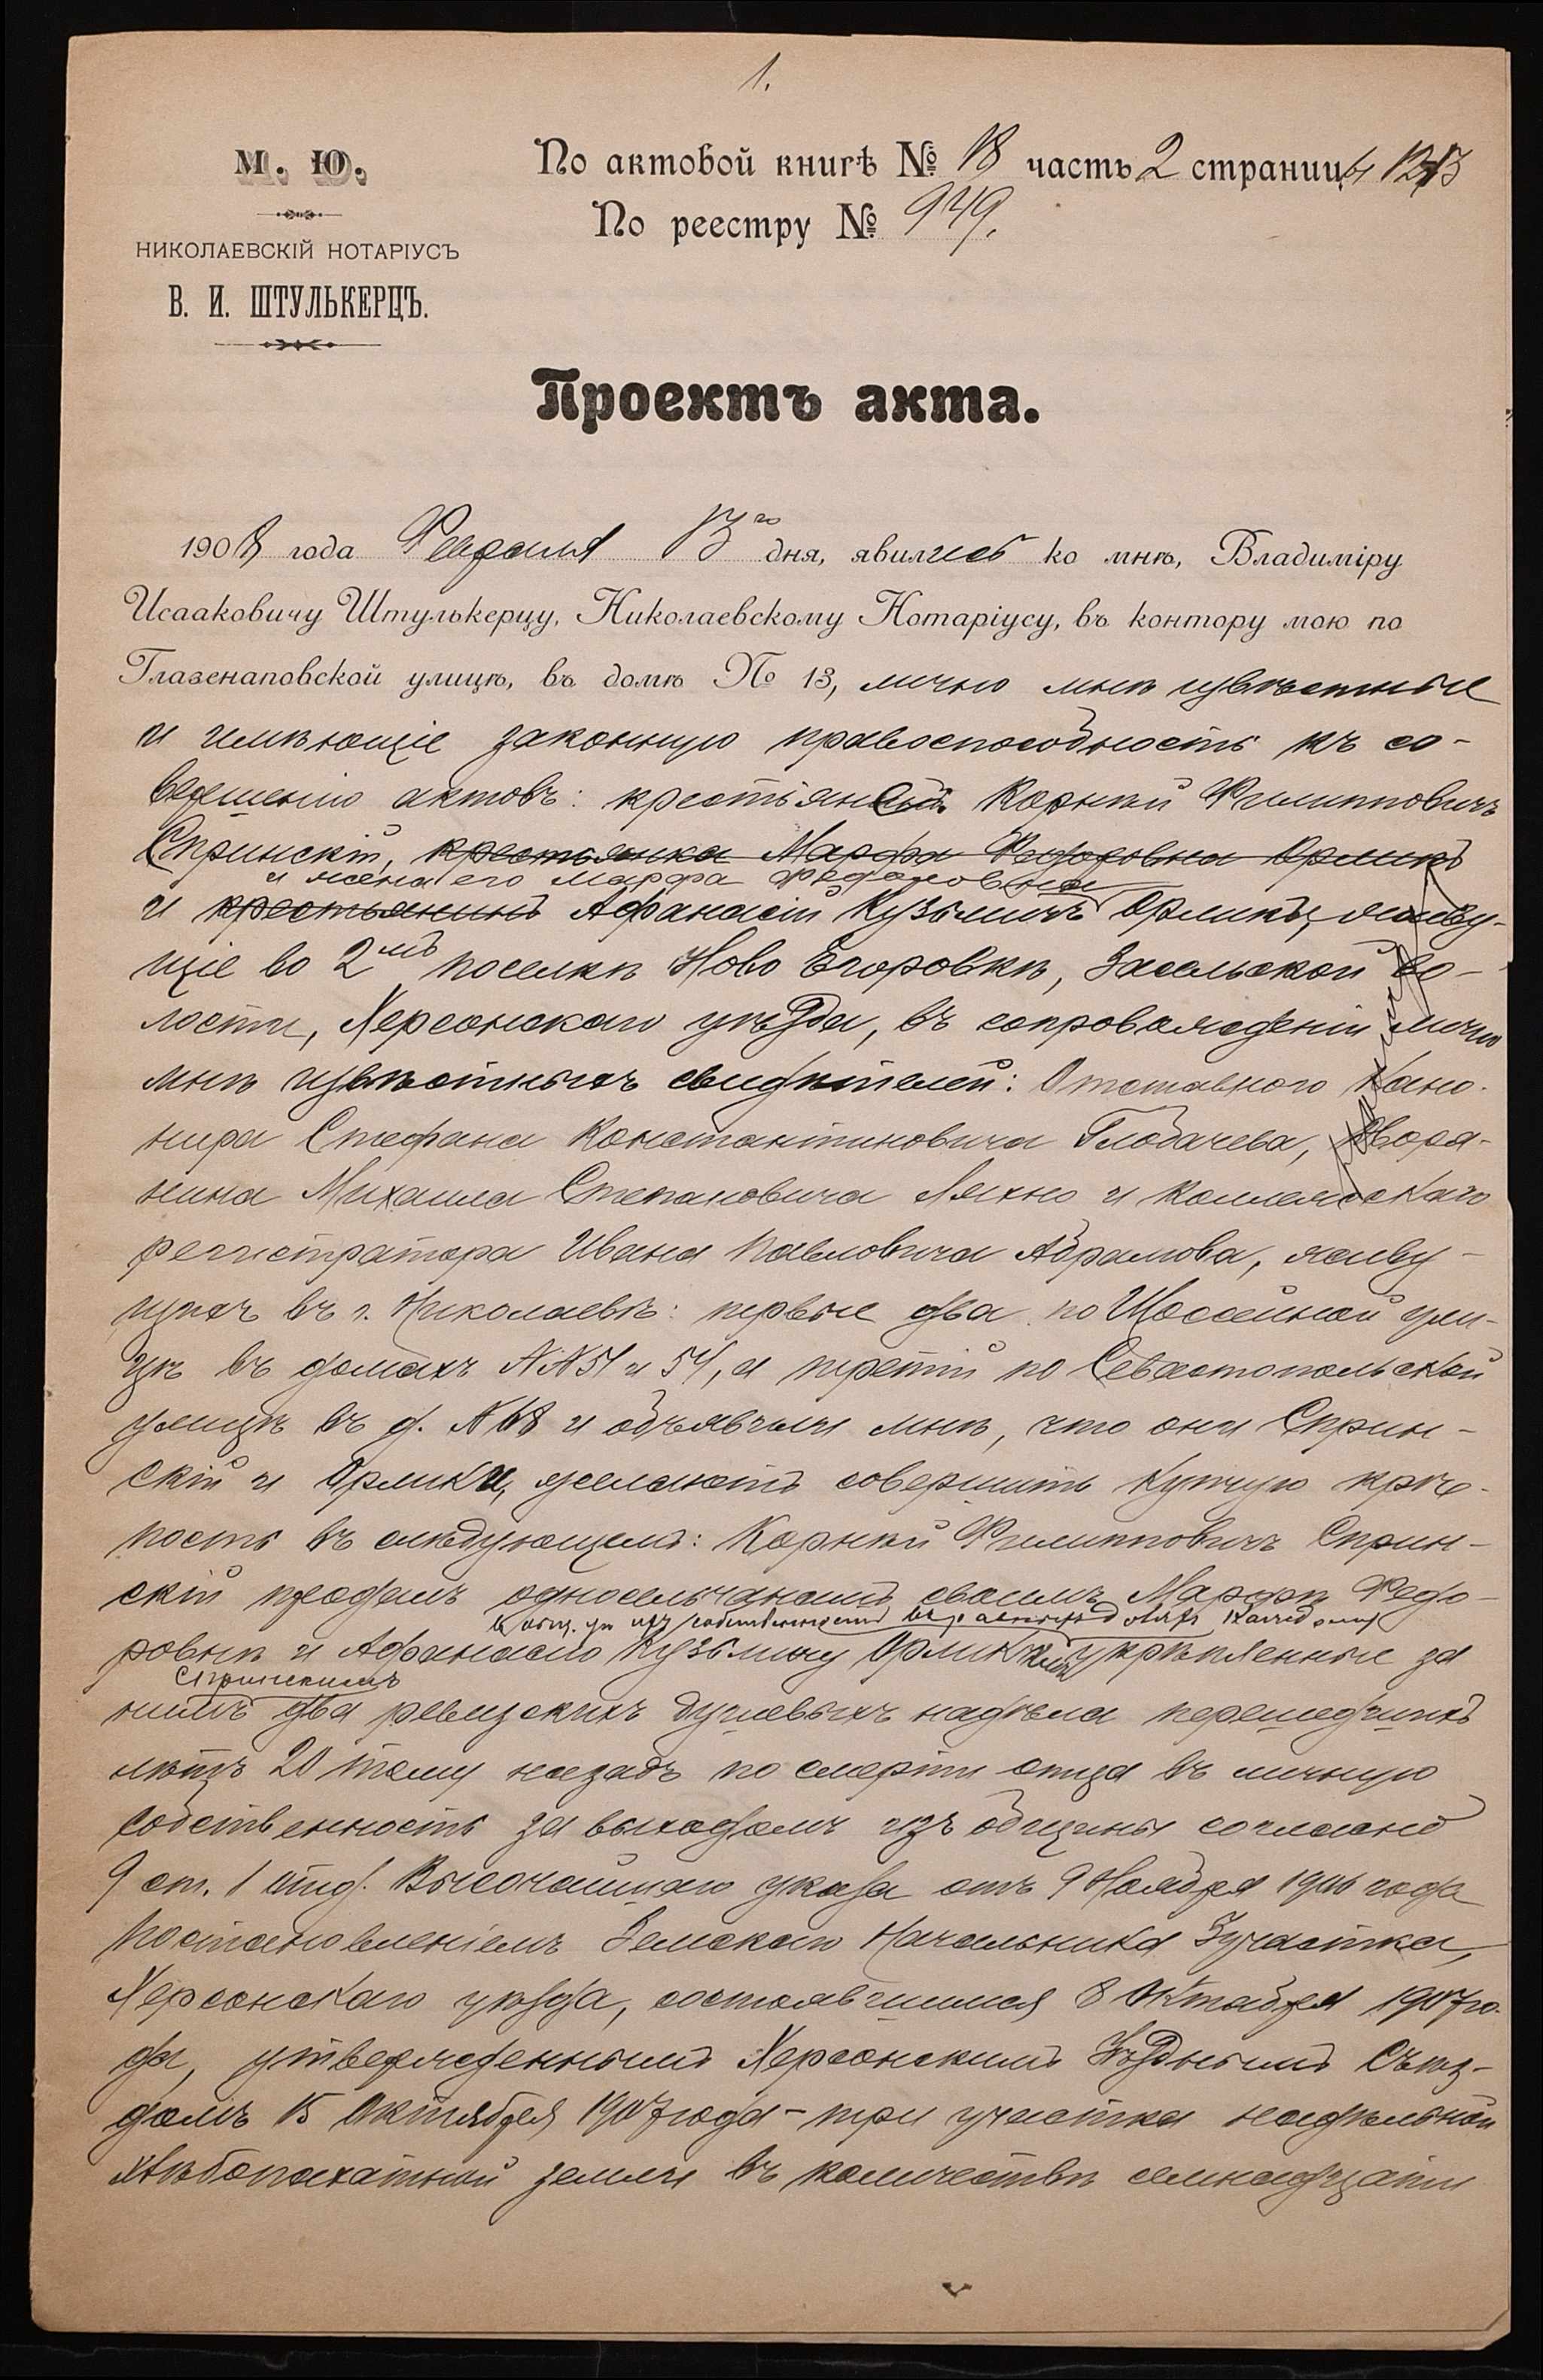 1.
М. Ю.
НИКОЛАЕВСКІЙ НОТАРІУСЪ
В. И. ШТУЛЬКЕРЦЪ.
По актовой книгѣ № 18 часть 2 страница
По реестру № 949.
Проектъ акта.
1908 года Февраля 13го дня, явились ко мнѣ, Владиміру
Исааковичу Штулькерцу, Николаевскому Нотаріусу, въ контору мою по
Глазенаповской улицѣ, въ домѣ № 13, лично мнѣ извѣстные
и имѣющіе законную правоспособность къ со-
вершенію актовъ: крестьяне Корній Филипповичъ
Спринскій, крестьянка Марфа Федоровна Орликъ
и жена его Марфа Федоровна
и крестьянинъ Афанасій Кузьмичъ Орликъ, живу-
щіе во 2мъ поселкѣ Ново Егоровкѣ, Засельской во-
лости, Херсонскаго уѣзда, въ сопровожденіи лично
мнѣ извѣстныхъ свидѣтелей: Отставного Кано-
нира Стефана Константиновича Глобачева, Дворя-
нина Михаила Степановича Ляхно и Коллежскаго
регистратора Ивана Павловича Абрамова, живу-
щихъ въ г. Николаевѣ: первые два по Шоссейной ули-
цѣ въ домахъ №№ 51 и 54, а третій по Севастопольской
улицѣ въ д. № 68 и объявили мнѣ, что они Сприн-
скій и Орлики, желаютъ совершить купчую крѣ-
пость въ слѣдующемъ: Корній Филипповичъ Сприн-
скій продалъ односельчанамъ своимъ Марфѣ Федо-
въ общ. ую ихъ собственность въ частяхъ каждому
ровнѣ и Афанасію Кузьмичу Орликамъ укрѣпленные за
Спринскимъ
нимъ два ревизскихъ душевыхъ надѣла перешедшихъ
лѣтъ 20 тому назадъ по смерти отца въ личную
собственность за выходомъ изъ общины согласно
9 ст. 1 отд. Высочайшаго указа отъ 9 Ноября 1906 года
Постановленіемъ Земскаго Начальника 3 участка,
Херсонскаго уѣзда, состоявшимся 8 Октября 1907 го-
да, утвержденнымъ Херсонскимъ Уѣзднымъ Съѣз-
домъ 15 Октября 1907 года - три участка надѣльной
хлѣбопахатной земли въ количествѣ семнадцати